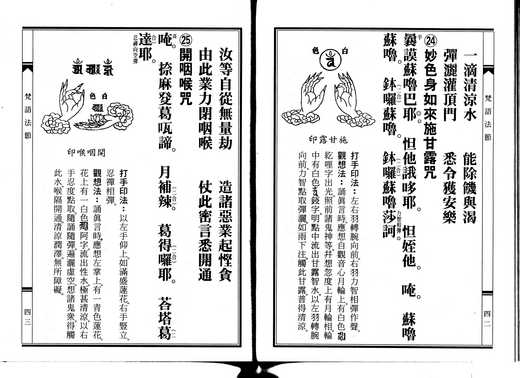 一滴清涼水　　能除饑與渴
彈灑灌頂門　　悉令獲安樂
㉔妙色身如來施甘露咒
曩謨蘇嚕巴耶。怛他誐哆耶。怛姪他。唵。蘇嚕
蘇嚕。鉢囉蘇嚕。鉢囉蘇嚕莎訶
白色
施甘露印
打手印法：左右羽轉腕向前右羽力智相彈作聲。
觀想法：誦眞言時應想自觀音心月輪上有白色
乾哩字出光照前諸鬼神等幷想忽度上有月輪相輪
中有白色鋑字明點中流出甘露智水以左羽轉腕
向前力智點取彈灑如雨下注觸此甘露普得清涼
梵語法韻
四二
汝等自從無量劫　　造諸惡業起慳貪
由此業力閉咽喉　　仗此密言悉開通
㉕開咽喉咒
唵。捺麻癹葛瓦諦。月補辣。葛得囉耶。荅塔葛
達耶。
白色
開咽喉印
打手印法：以左手仰上如滿盛蓮花右手豎立
忍禪相彈。
觀想法：誦眞言時應想左掌上有一青色蓮花。
花上有一白色阿字流出性水極甚清涼以右
手忍度點取隨誦隨彈遍灑虛空想諸鬼衆得觸
此水喉隔開通清涼潤澤無所障礙。
梵語法韻
四三